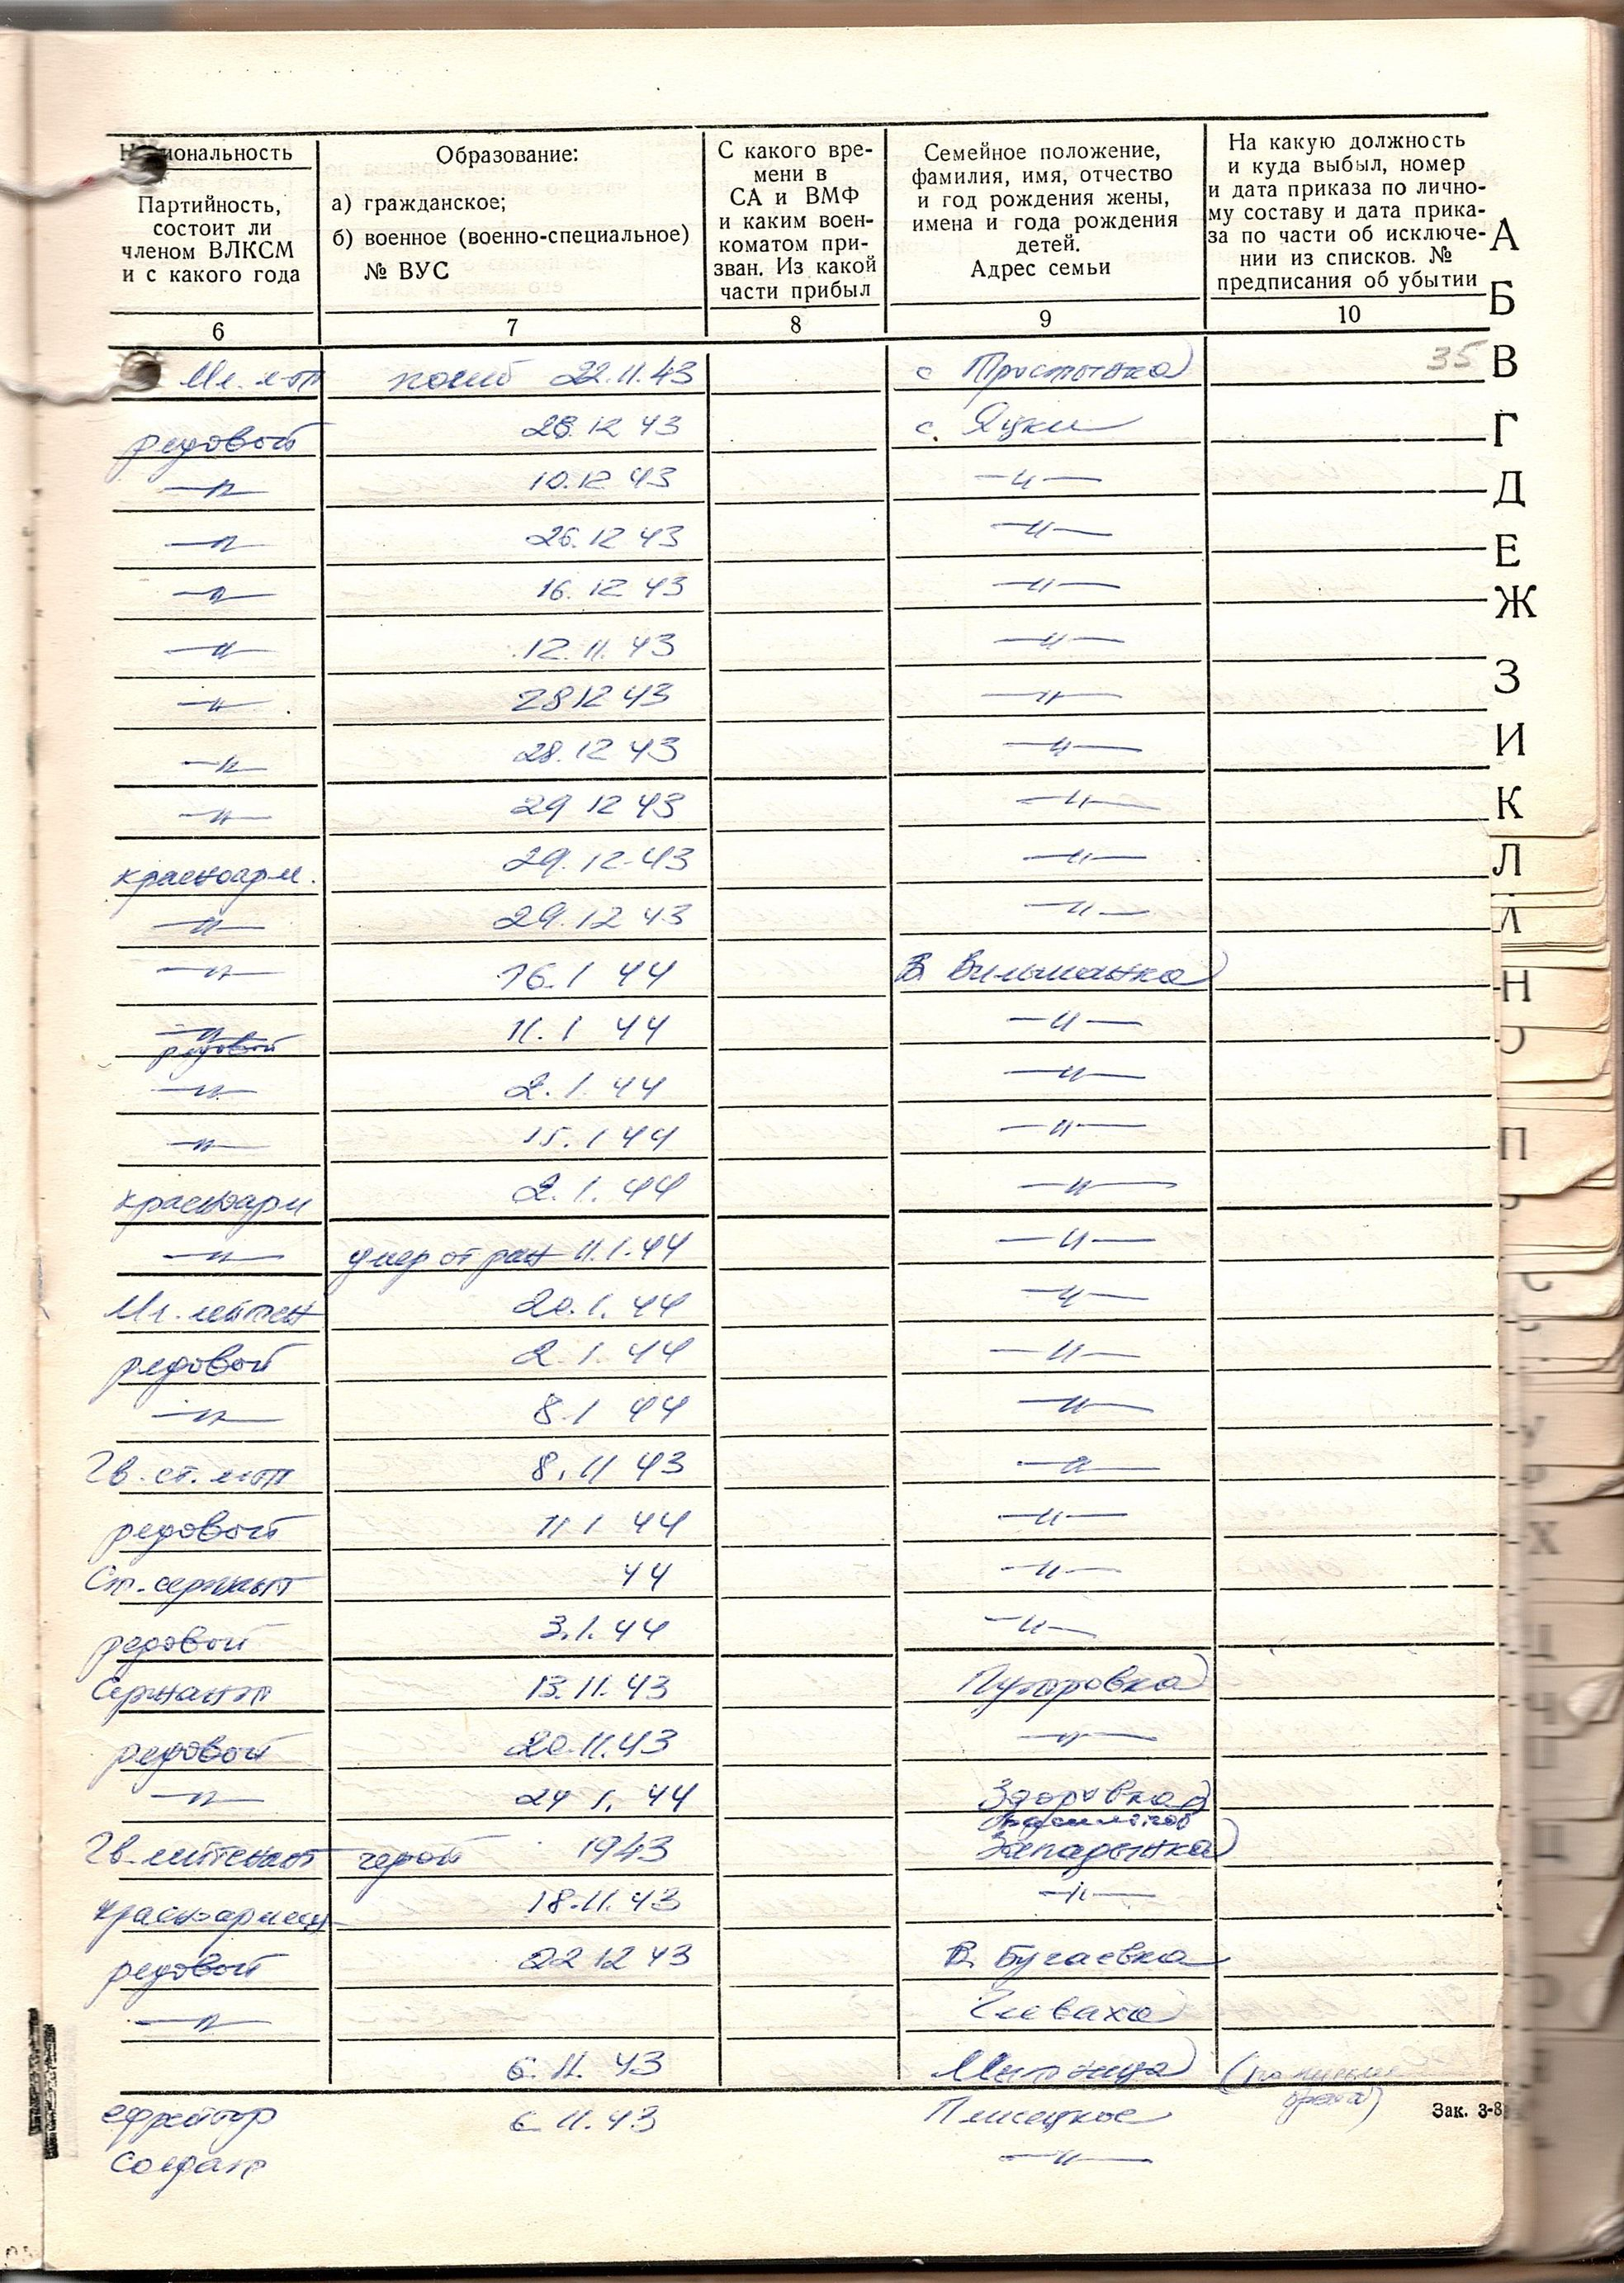 Национальность
Партийность,
состоит ли
членом ВЛКСМ
и с какого года
Образование:
а) гражданское;
б) военное (военно-специальное)
№ ВУС
С какого вре-
мени в
СА и ВМФ
и каким воен-
коматом при-
зван. Из какой
части прибыл
Семейное положение,
фамилия, имя, отчество
и год рождения жены,
имена и года рождения
детей.
Адрес семьи
На какую должность
и куда выбыл, номер
и дата приказа по лично-
му составу и дата прика-
за по части об исключе-
нии из списков. №
предписания об убытии
6 7 8 9 10
Мл. л-т погиб 22.11.43 с 35
редовой 28.12 43 с. Яцки
—"— 10.12 43 —"—
—"— 26.12 43 —"—
—"— 16.12 43 —"—
—"— 12.11.43 —"—
—"— 28 12 43 —"—
—"— 28.12 43 —"—
—"— 29 12 43 —"—
красноарм. 29.12-43 —"—
—"— 29.12 43 —"—
—"— 16.1 44 В. Вильшанка
—"—
редовой 11.1 44 —"—
—"— 2.1.44 —"—
—"— 15.1 44 —"—
красноарм 2.1.44 —"—
—"— умер от ран 11.1.44 —"—
Мл. лейтен 20.1.44 —"—
редовой 2.1 44 —"—
—"— 8.1 44 —"—
Гв. ст. л-т 8.11 43 —"—
редовой 11 1 44 —"—
Ст. сержант 44 —"—
редовой 3.1.44 —"—
Сержант 13.11.43
редовой 20.11.43 —"—
—"— 24 1. 44 Здоровка
Гв. лейтенант герой 1943 Западынка
красноармец 18.11.43 —"—
редовой 22 12 43 В. Бугаевка
—"— Глеваха
6.11.43 Мытница (по письму
брата)
ефрейтор 6 11.43 Плисецкое
Солдат —"—
Зак. 3-8
А
Б
В
Г
Д
Е
Ж
З
И
К
Л
Н
О
П
С
У
Х
Ц
Ч